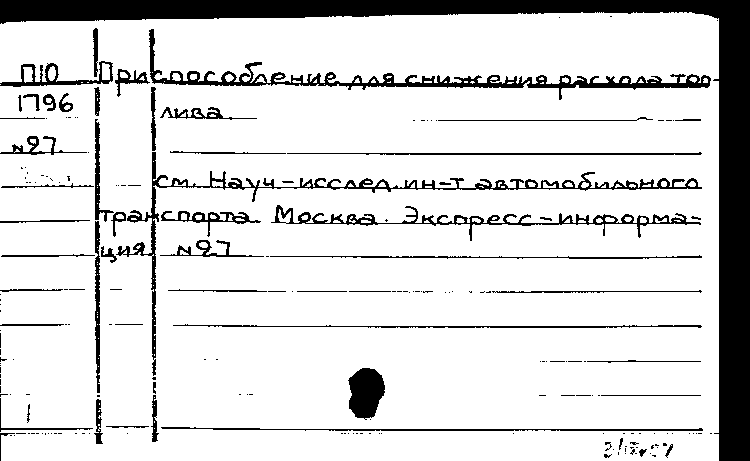 П10 Приспособление для снижения расхода топ-
1796 лива.
№27.
см. Науч-исслед. ин-т автомобильного
транспорта. Москва. Экспресс-информа-
ция №27